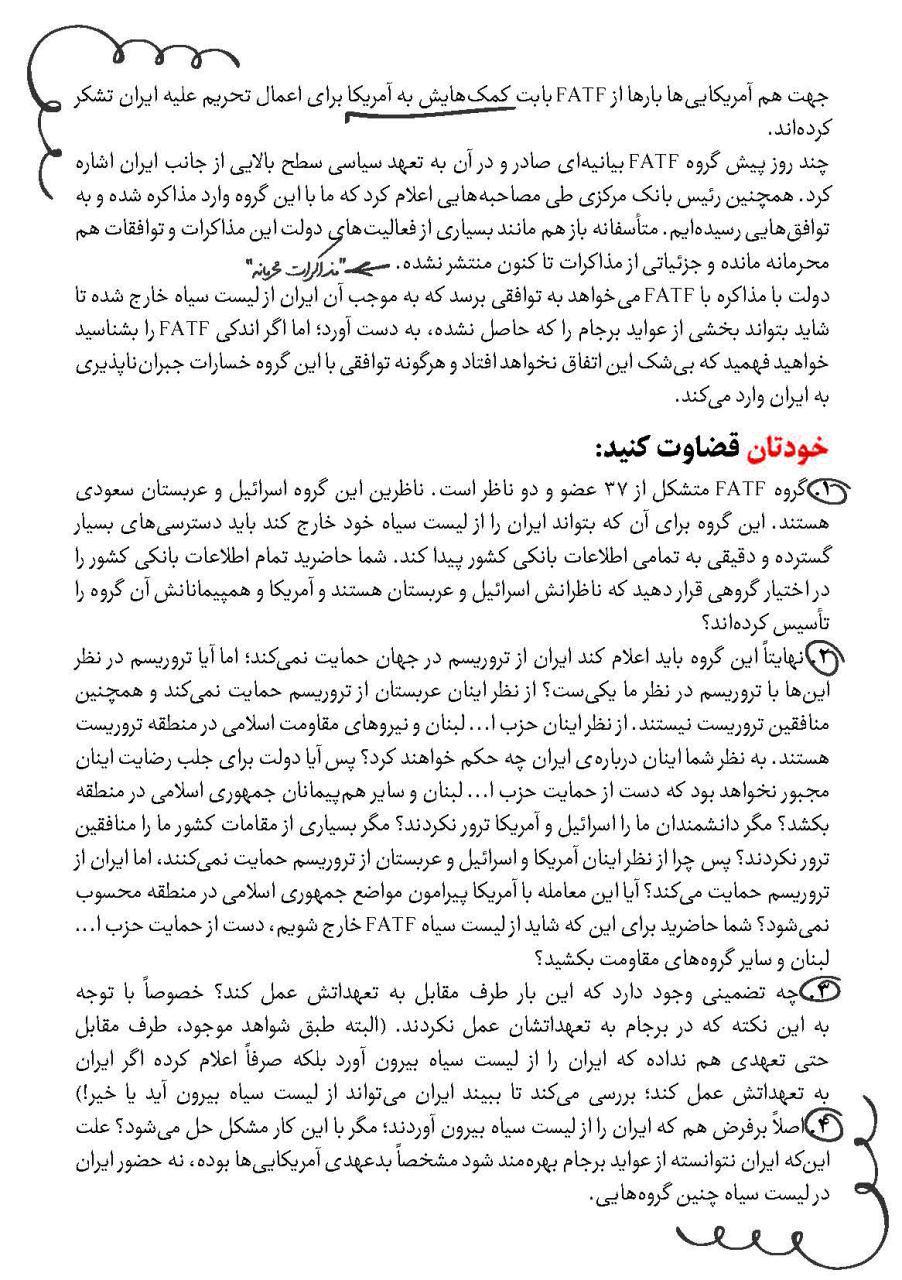 جهت هم آمریکایی‌ها بارها از FATF بابت کمک‌هایش به آمریکا برای اعمال تحریم علیه ایران تشکر
کرده‌اند.
چند روز پیش گروه FATF بیانیه‌ای صادر و در آن به تعهد سیاسی سطح بالایی از جانب ایران اشاره
کرد. همچنین رئیس بانک مرکزی طی مصاحبه‌هایی اعلام کرد که ما با این گروه وارد مذاکره شده و به
توافق‌هایی رسیده‌ایم. متأسفانه باز هم مانند بسیاری از فعالیت‌های دولت این مذاکرات و توافقات هم
محرمانه مانده و جزئیاتی از مذاکرات تا کنون منتشر نشده. "مذاکرات محرمانه"
دولت با مذاکره با FATF می‌خواهد به توافقی برسد که به موجب آن ایران از لیست سیاه خارج شده تا
شاید بتواند بخشی از عواید برجام را که حاصل نشده، به دست آورد؛ اما اگر اندکی FATF را بشناسید
خواهید فهمید که بی‌شک این اتفاق نخواهد افتاد و هرگونه توافقی با این گروه خسارات جبران‌ناپذیری
به ایران وارد می‌کند.
خودتان قضاوت کنید:
۱. گروه FATF متشکل از ۳۷ عضو و دو ناظر است. ناظرین این گروه اسرائیل و عربستان سعودی
هستند. این گروه برای آن که بتواند ایران را از لیست سیاه خود خارج کند باید دسترسی‌های بسیار
گسترده و دقیقی به تمامی اطلاعات بانکی کشور پیدا کند. شما حاضرید تمام اطلاعات بانکی کشور را
در اختیار گروهی قرار دهید که ناظرانش اسرائیل و عربستان هستند و آمریکا و همپیمانانش آن گروه را
تأسیس کرده‌اند؟
۲. نهایتاً این گروه باید اعلام کند ایران از تروریسم در جهان حمایت نمی‌کند؛ اما آیا تروریسم در نظر
این‌ها با تروریسم در نظر ما یکی‌ست؟ از نظر اینان عربستان از تروریسم حمایت نمی‌کند و همچنین
منافقین تروریست نیستند. از نظر اینان حزب ا... لبنان و نیروهای مقاومت اسلامی در منطقه تروریست
هستند. به نظر شما اینان درباره‌ی ایران چه حکم خواهند کرد؟ پس آیا دولت برای جلب رضایت اینان
مجبور نخواهد بود که دست از حمایت حزب ا... لبنان و سایر هم‌پیمانان جمهوری اسلامی در منطقه
بکشد؟ مگر دانشمندان ما را اسرائیل و آمریکا ترور نکردند؟ مگر بسیاری از مقامات کشور ما را منافقین
ترور نکردند؟ پس چرا از نظر اینان آمریکا و اسرائیل و عربستان از تروریسم حمایت نمی‌کنند، اما ایران از
تروریسم حمایت می‌کند؟ آیا این معامله با آمریکا پیرامون مواضع جمهوری اسلامی در منطقه محسوب
نمی‌شود؟ شما حاضرید برای این که شاید از لیست سیاه FATF خارج شویم، دست از حمایت حزب ا...
لبنان و سایر گروه‌های مقاومت بکشید؟
۳. چه تضمینی وجود دارد که این بار طرف مقابل به تعهداتش عمل کند؟ خصوصاً با توجه
به این نکته که در برجام به تعهداتشان عمل نکردند. (البته طبق شواهد موجود، طرف مقابل
حتی تعهدی هم نداده که ایران را از لیست سیاه بیرون آورد بلکه صرفاً اعلام کرده اگر ایران
به تعهداتش عمل کند؛ بررسی می‌کند تا ببیند ایران می‌تواند از لیست سیاه بیرون آید یا خیر!)
۴. اصلاً برفرض هم که ایران را از لیست سیاه بیرون آوردند؛ مگر با این کار مشکل حل می‌شود؟ علت
این‌که ایران نتوانسته از عواید برجام بهره‌مند شود مشخصاً بدعهدی آمریکایی‌ها بوده، نه حضور ایران
در لیست سیاه چنین گروه‌هایی.